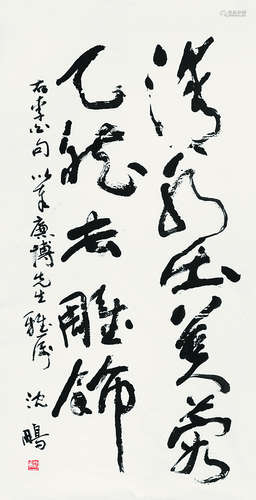 清水出芙蓉
天然去雕饰
右李白句以奉广博先生雅属
沈鹏